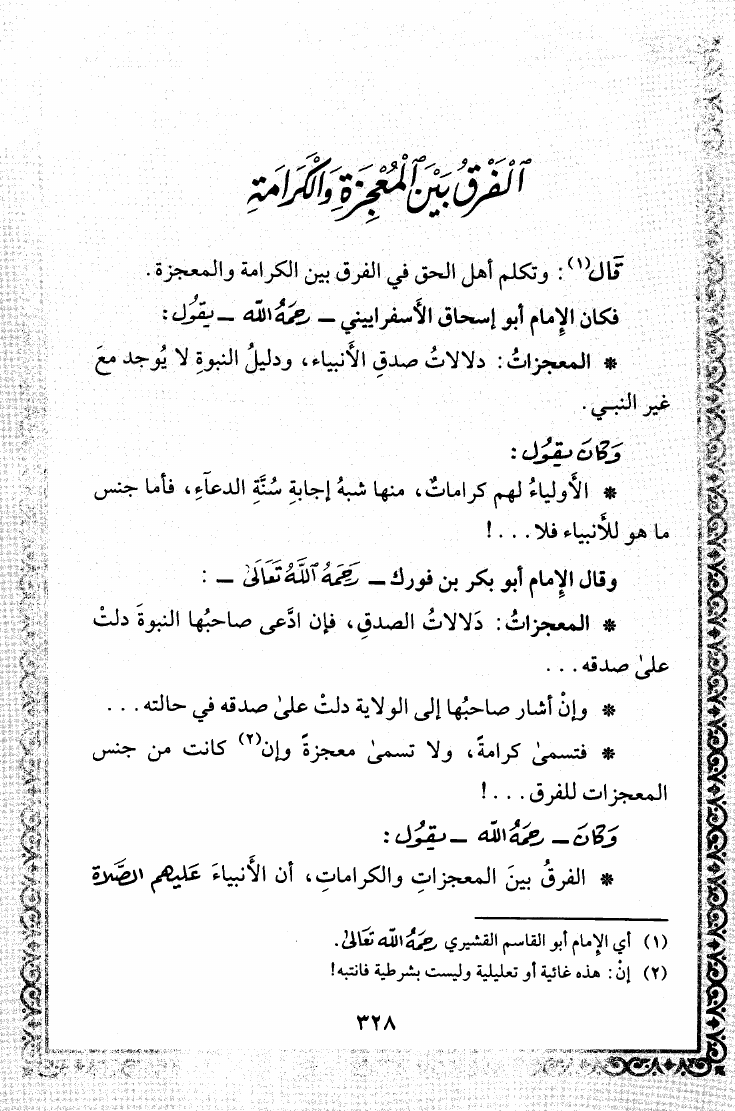 اَلْفَرْقُ بَيْنَ الْمُعْجِزَةِ وَالْكَرَامَةِ
قَال(١): وتكلم أهل الحق في الفرق بين الكرامة والمعجزة.
فكان الإمام أبو إسحاق الأسفراييني ـ رحِمَهُ الله ـ يقُول:
* المعجزاتُ: دلالاتُ صدقِ الأنبياء، ودليلُ النبوةِ لا يُوجد معَ
غير النبـي.
وَكانَ يقُول:
* الأولياءُ لهم كراماتٌ، منها شبهُ إجابةِ سُنَّةِ الدعآءِ، فأما جنس
ما هو للأنبياء فلا...!
وقال الإمام أبو بكر بن فورك ـ رَحِمَهُ اللَّهُ تَعَالَىٰ ـ :
* المعجزاتُ: دَلالاتُ الصدقِ، فإن ادَّعى صاحبُها النبوةَ دلتْ
علىٰ صدقه...
* وإنْ أشار صاحبُها إلى الولاية دلتْ علىٰ صدقه في حالته...
* فتسمىٰ كرامةً، ولا تسمىٰ معجزةً وإن(٢) كانت من جنس
المعجزات للفرق...!
وَكانَ ـ رحِمَهُ الله ـ يقُول:
* الفرقُ بينَ المعجزاتِ والكراماتِ، أن الأنبياءَ عَليهم الصَّلاة
(١) أي الإمام أبو القاسم القشيري رحِمَهُ الله تعَالىٰ.
(٢) إنْ: هذه غائية أو تعليلية وليست بشرطية فانتبه!
٣٢٨